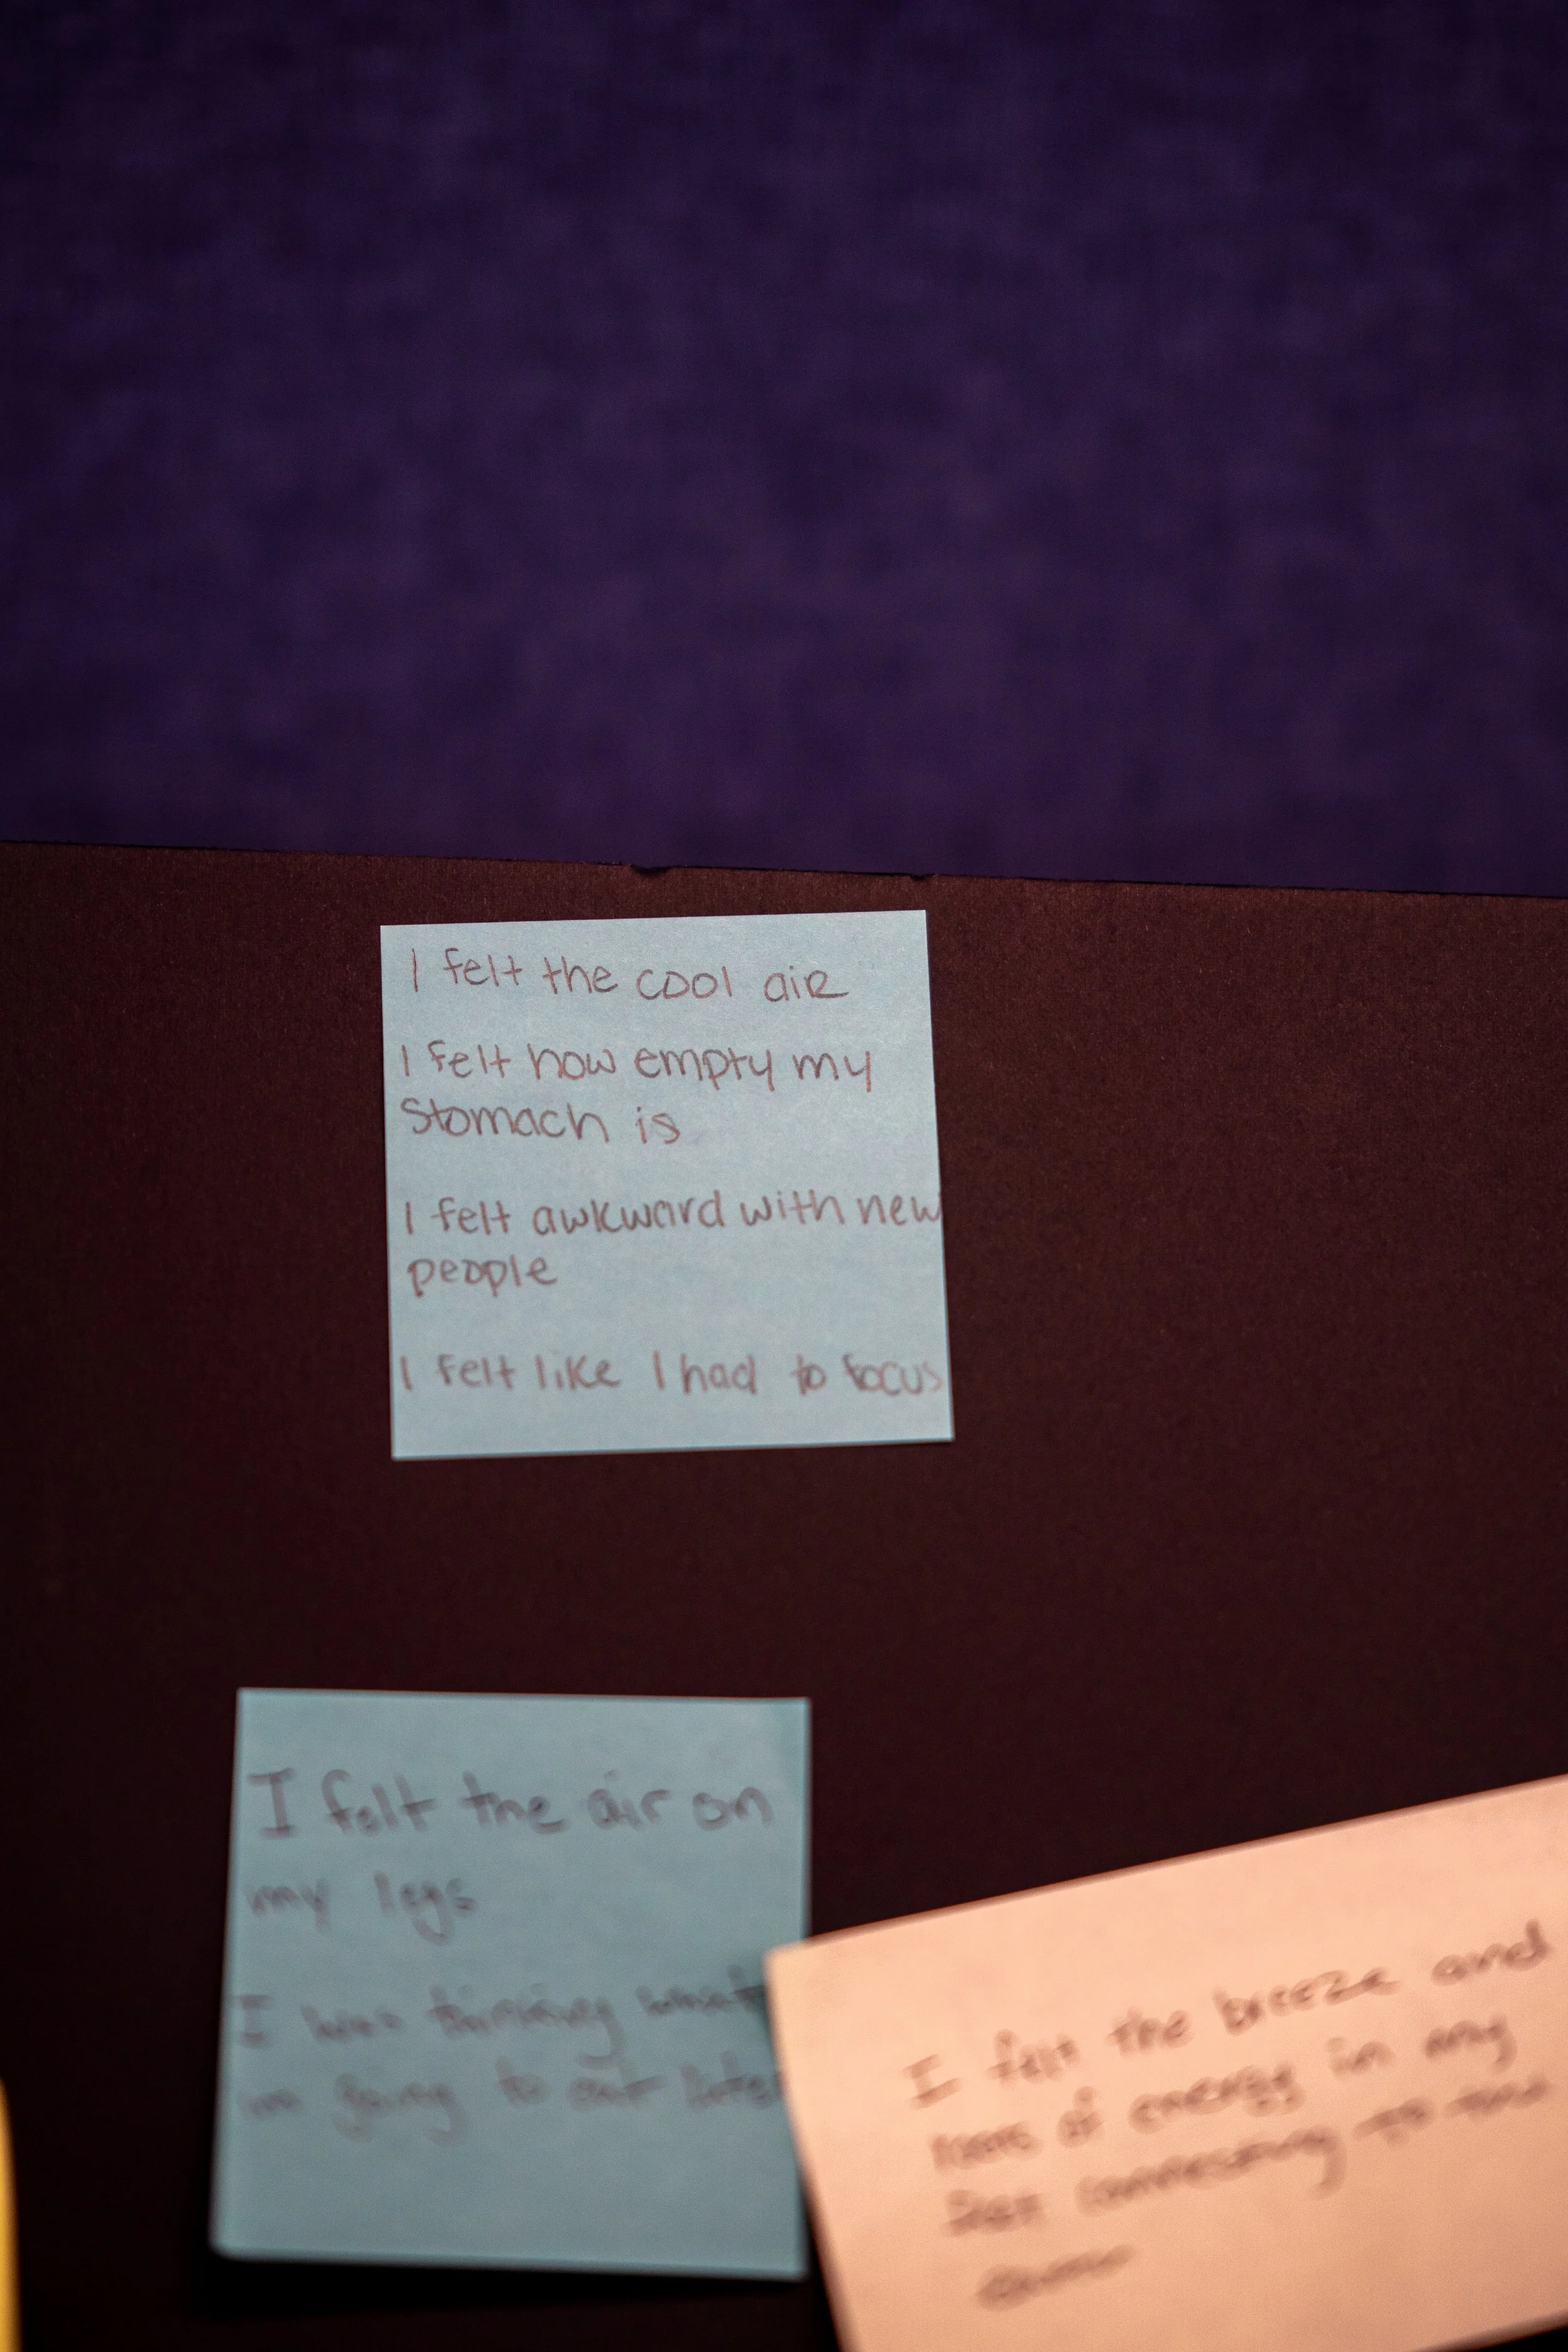 I felt the cool air
I felt how empty my
Stomach is
I felt awkward with new
people
I felt like I had to focus
I felt the air on
my legs
I was thinking what
im going to eat later
I felt the breeze and
of energy in my
feet connecting to the